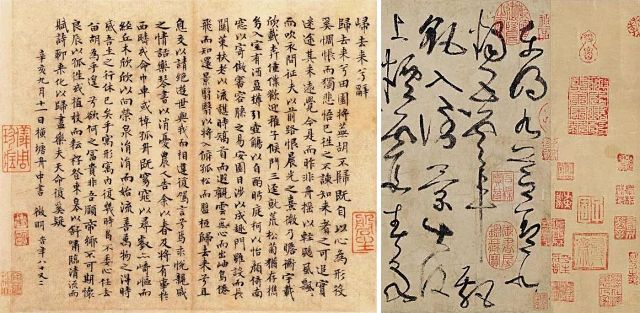 歸去来兮辭
歸去来兮田園將蕪胡不歸既自以心為形役
奚惆悵而獨悲悟已往之不諫知来者之可追實
迷途其未遠覺今是而昨非舟搖搖以輕颺風飄飄
而吹衣問征夫以前路恨晨光之熹微乃瞻衡宇載
欣載奔僮僕歡迎稚子候門三逕就荒松菊猶存攜
幼入室有酒盈樽引壺觴以自酌眄庭柯以怡顏倚南
窗以寄傲審容膝之易安園日涉以成趣門雖設而長
關策扶老以流憩時矯首而遐觀雲無心而出岫鳥倦
飛而知還景翳翳以將入撫孤松而盤桓歸去来兮且
息交以請絕遊世與我而相違復駕言兮焉求悅親戚
之情話樂琴書以消憂農人告余以春及將有事於
西疇或命巾車或棹孤舟既窈窕以尋壑亦崎嶇而
經丘木欣欣以向榮泉涓涓而始流善萬物之得時
感吾生之行休已矣乎寓形宇內復幾時曷不委心任去
留胡為乎遑遑兮欲何之富貴非吾願帝鄉不可期懷
良辰以孤往或植杖而耘耔登東皋以舒嘯臨清流而
賦詩聊乘化以歸盡樂夫天命復奚疑
辛亥九月十一日橫塘舟中書 徵明 時年八十又二
東明九芝蓋北
燭五雲車飄
飖入倒景出沒
上煙霞春泉